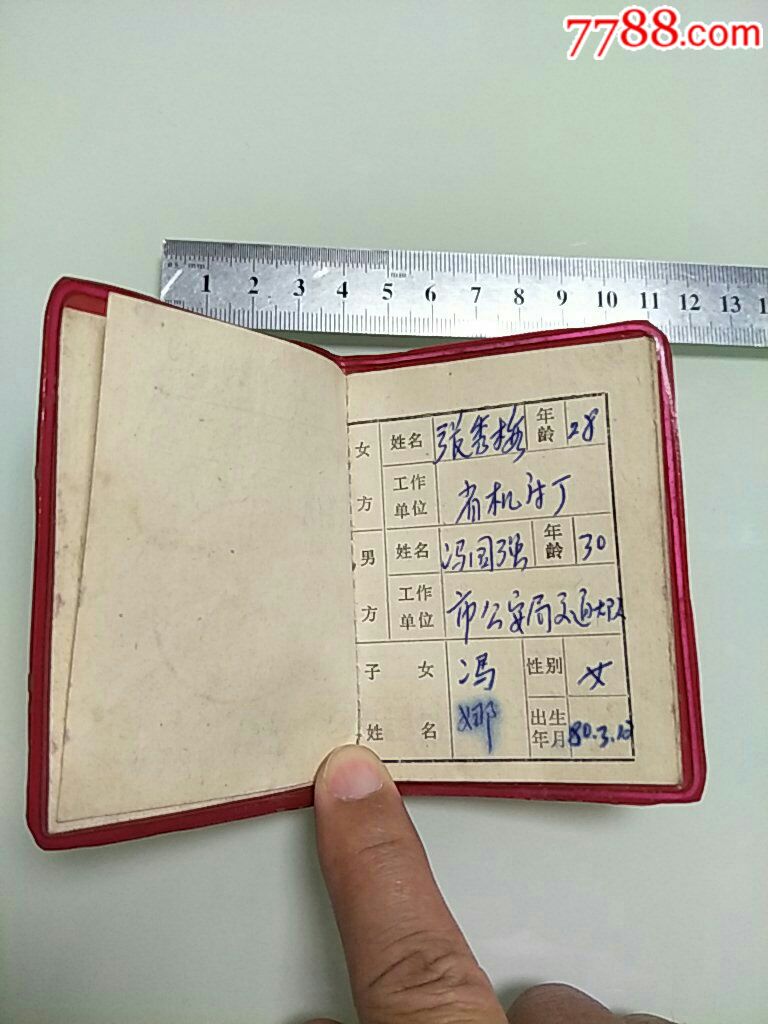 7788.com
mm 1 2 3 4 5 6 7 8 9 10 11 12 13
女方 姓名 张秀梅 年龄 28
工作单位 省机附厂
男方 姓名 冯国强 年龄 30
工作单位 市公安局交通大队
子女姓名 冯娜 性别 女
出生年月 80.3.